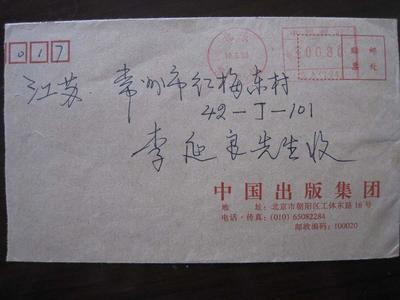 017
江苏 常州市红梅东村
42-J-101
李延良先生收
中国出版集团
地 址：北京市朝阳区工体东路16号
电话·传真：(010) 65082284
邮政编码：100020